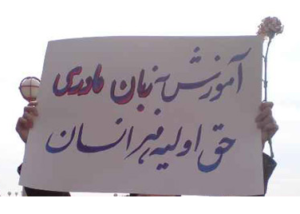 آموزش به زبان مادری
حق اولیه هر انسان